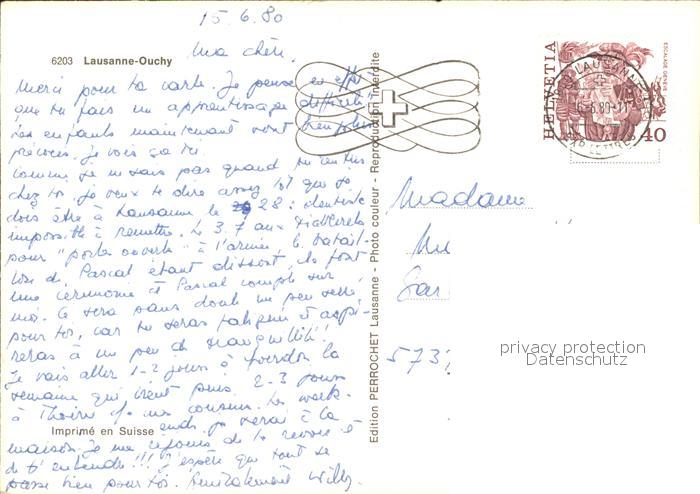 15.6.80
6203 Lausanne-Ouchy
Ma chéri,
Merci pour ta carte. Je pense en effet
que tu fais un apprentissage difficile
Les enfants maintenant sont bien plus
précoces. Je vois ça ici
Comme je ne sais pas quand tu rentres
chez toi, je veux te dire assez tôt que je
dois être à Lausanne le 28 : dentiste
impossible à remettre. Le 3.7 aux
pour "porte ouverte" à l'armée, le batail-
lon de Pascal étant dissout, ils font
une cérémonie et Pascal compte sur
moi. Ce sera sans doute un peu serré
pour toi, car tu seras fatiguée et aspi-
reras à un peu de tranquillité!
Je vais aller 1-2 jours à Yverdon la
semaine qui vient puis 2-3 jours
à Thoiry mes cousins. Les week-
ends je serai à la
Imprimé en Suisse
maison. Je me réjouis de te revoir et
de t'entendre!!! J'espère que tout se
passe bien pour toi. Amicalement Willy.
Edition PERROCHET Lausanne - Photo couleur - Reproduction interdite
HELVETIA
ESCALADE GENÈVE
40
LAUSANNE
16.6.80-11
EXP LETTRES
Madame
573
privacy protection
Datenschutz